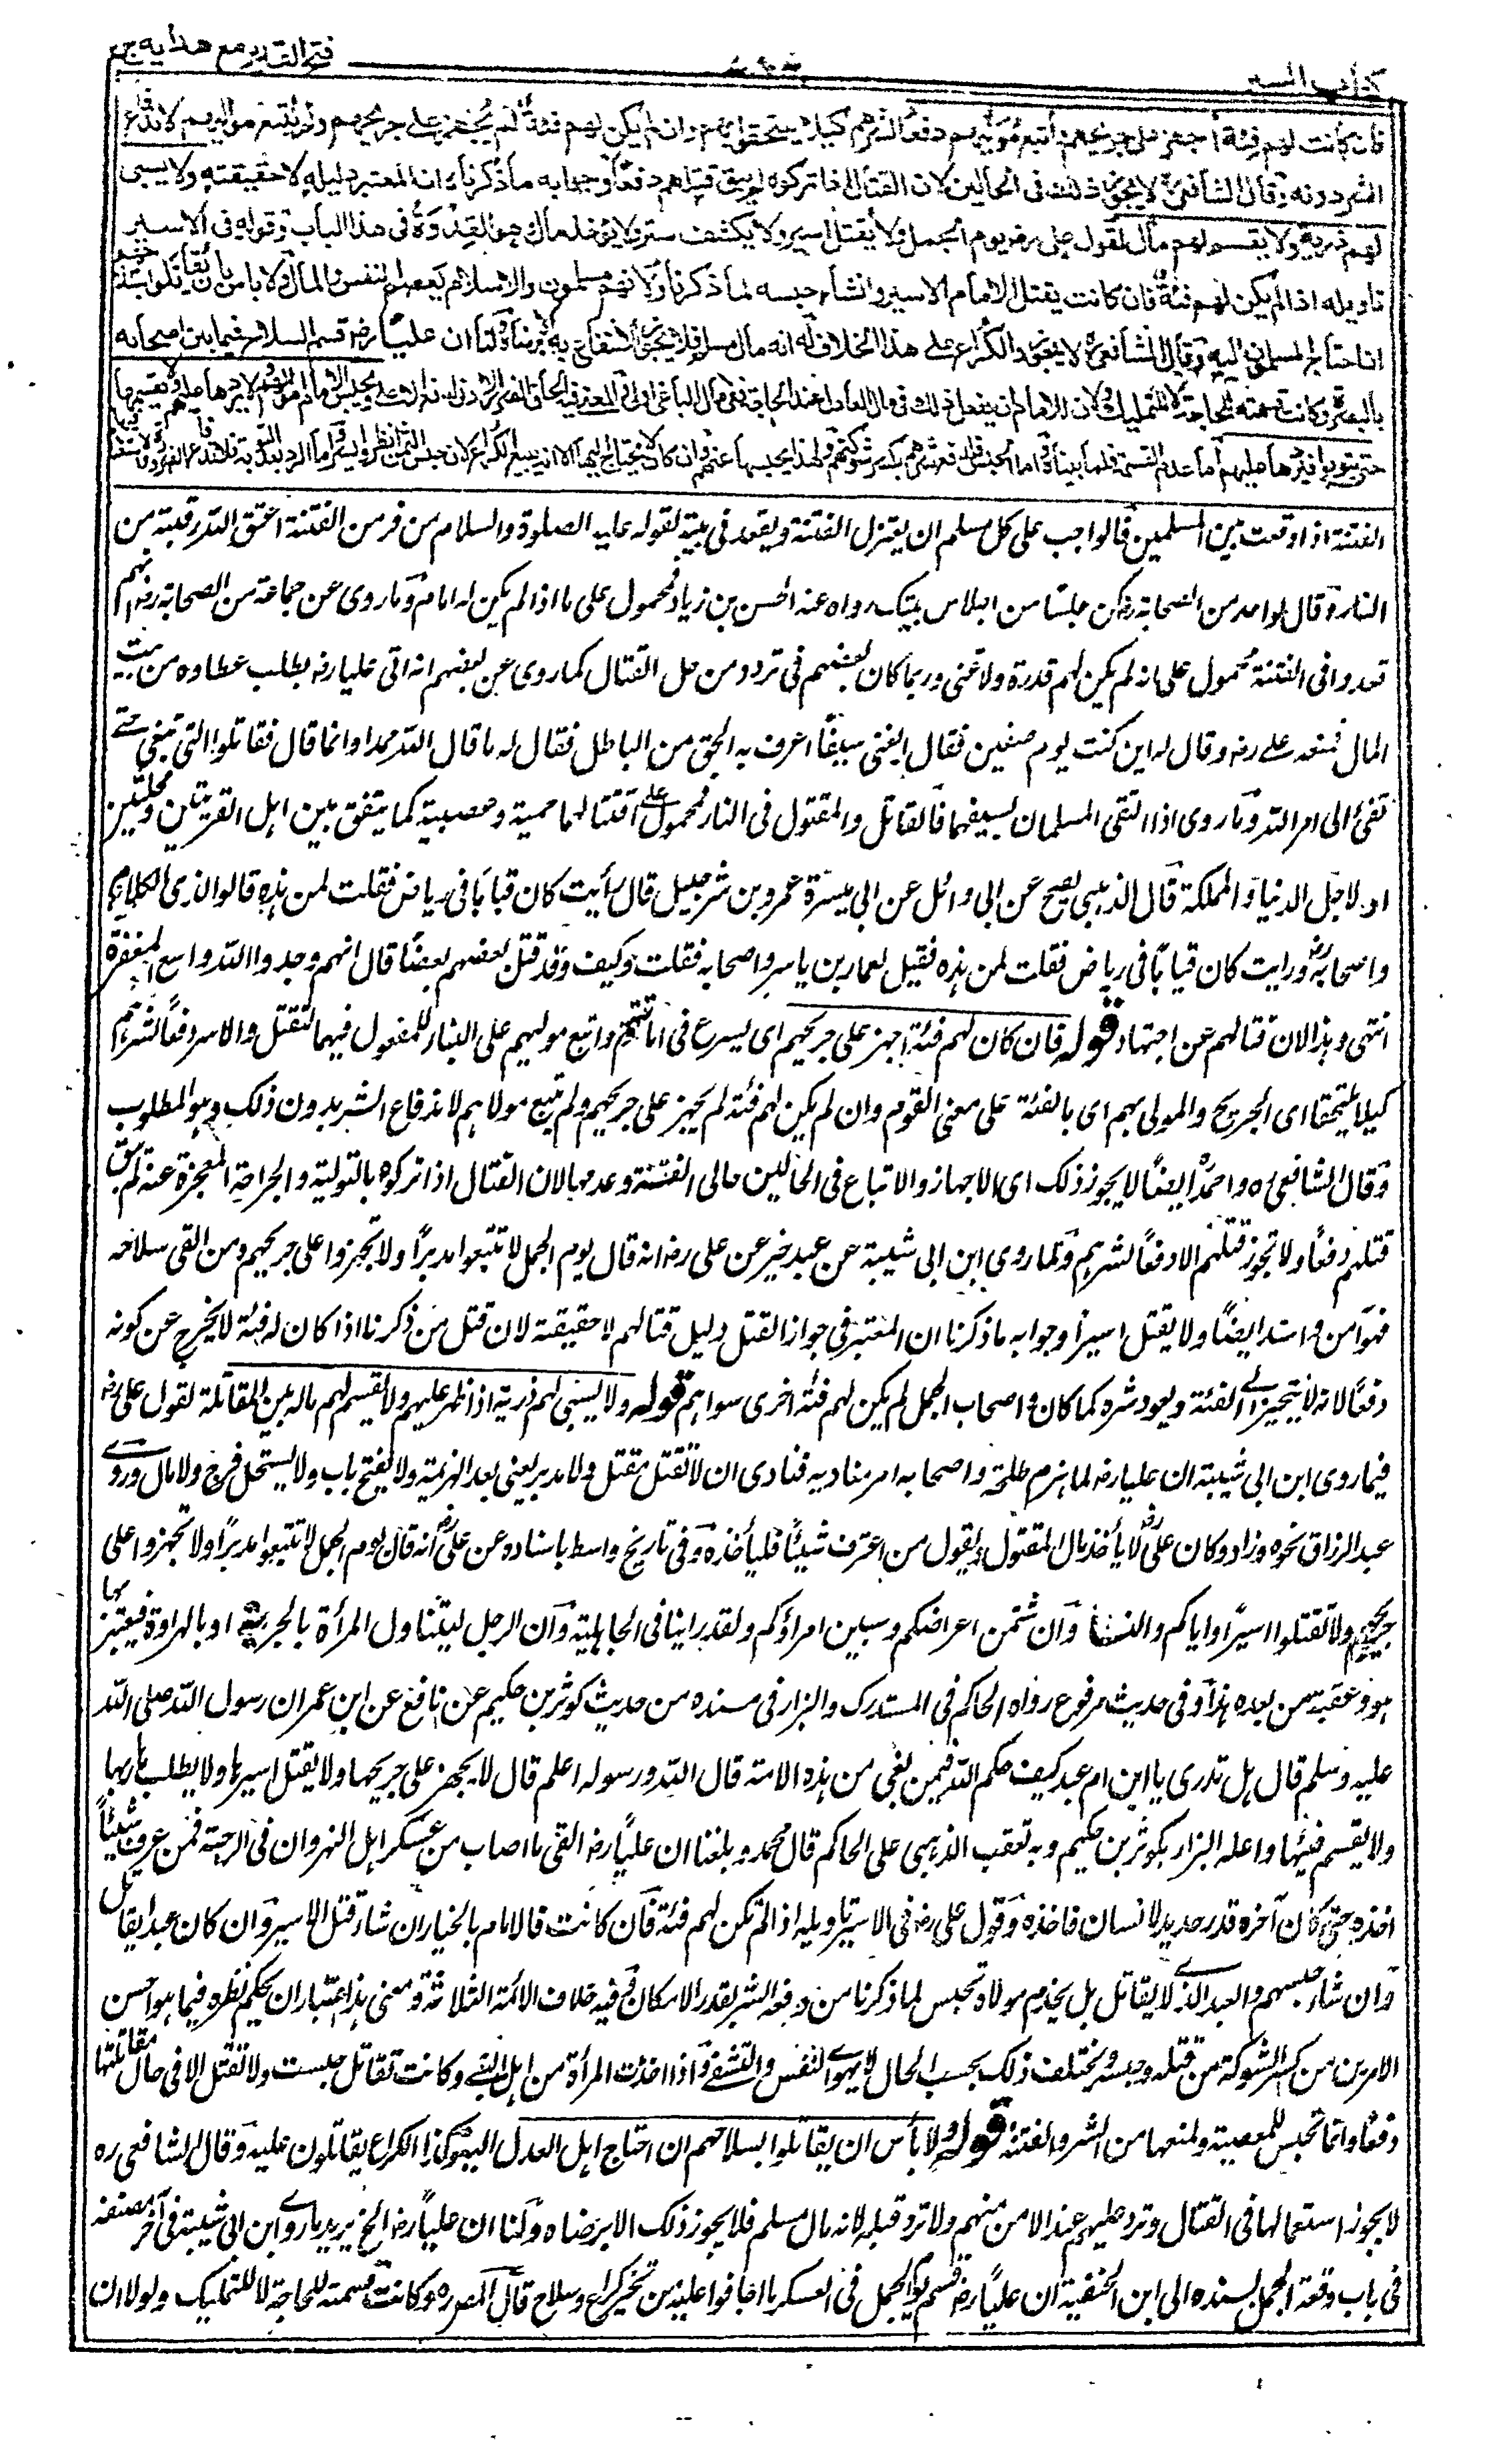 كتاب السير
فتح القدير مع هدايه ج٢
فان كانت لهم فئة اجهز على جريحهم واتبع موليهم دفعا لشرهم كيلا يلتحقوا بهم وان لم يكن لهم فئة لم يجهز على جريحهم ولم يتبع موليهم لاندفاع
الشر دونه وقال الشافعى لا يجوز ذلك فى الحالين لان القتال اذا تركوه لم يبق قتلهم دفعا وجوابه ما ذكرناه ان المعتبر دليله لا حقيقته ولا يسبى
لهم ذرية ولا يقسم لهم مال لقول على رض يوم الجمل ولا يقتل اسير ولا يكشف ستر ولا يؤخذ مال وهو القدوة فى هذا الباب وقوله فى الاسير
تاويله اذا لم يكن لهم فئة فان كانت يقتل الامام الاسير وان شاء حبسه لما ذكرنا ولانهم مسلمون والاسلام يعصم النفس والمال ولا باس بان يقاتلوا بسلاحهم
ان احتاج المسلمون اليه وقال الشافعى لا يجوز والكراع على هذا الخلاف له انه مال مسلم فلا يجوز الانتفاع به الا برضاه ولنا ان عليا رض قسم السلاح فيما بين اصحابه
بالبصرة وكانت قسمته للحاجة لا للتمليك ولان للامام ان يفعل ذلك فى مال العادل عند الحاجة ففى مال الباغى اولى والمعنى فيه الحاق الضرر الادنى لدفع الاعلى ويحبس الامام اموالهم ولا يردها عليهم ولا يقسمها
حتى يتوبوا فيردها عليهم اما عدم القسمة فلما بيناه واما الحبس فلدفع شرهم بكسر شوكتهم ولهذا يحبسها عنهم وان كان لا يحتاج اليها الا انه يبيع الكراع لان حبس الثمن انظر وايسر واما الرد بعد التوبة فلاندفاع الضرورة ولا استغنام فيها
الفتنة اذا وقعت بين المسلمين فالواجب على كل مسلم ان يعتزل الفتنة ويقعد فى بيته لقوله عليه الصلوة والسلام من فر من الفتنة اعتق الله رقبته من
النار وقال لواحد من الصحابة رض كن حلسا من احلاس بيتك رواه عنه الحسن بن زياد فمحمول على ما اذا لم يكن له امام وما روى عن جماعة من الصحابة رض انهم
قعدوا فى الفتنة محمول على انه لم يكن لهم قدرة ولا غنى وربما كان بعضهم فى تردد من حل القتال كما روى عن بعضهم انه اتى عليا رض يطلب عطاءه من بيت
المال فمنعه على رض وقال له اين كنت يوم صفين فقال ابغنى سيفا اعرف به الحق من الباطل فقال له ما قال الله هذا وانما قال فقاتلوا التى تبغى حتى
تفئ الى امر الله وما روى اذا التقى المسلمان بسيفهما فالقاتل والمقتول فى النار محمول على اقتتالهما حمية وعصبية كما يتفق بين اهل القريتين ومحلتين
او لاجل الدنيا والمملكة قال الذهبى يصح عن ابى وائل عن ابى ميسرة عمرو بن شرحبيل قال رأيت كان قبابا فى رياض فقلت لمن هذه قالوا لذى الكلاع
واصحابه رض ورايت كان قبابا فى رياض فقلت لمن هذه فقيل لعمار بن ياسر واصحابه فقلت وكيف وقد قتل بعضهم بعضا قال انهم وجدوا الله واسع المغفرة
انتهى وهذا لان قتالهم عن اجتهاد قوله فان كان لهم فئة اجهز على جريحهم اى يسرع فى اماتتهم واتبع موليهم على البناء للمفعول فيهما للقتل والاسر دفعا لشرهم
كيلا يلتحقا اى الجريح والمولى بهم اى بالفئة على معنى القوم وان لم يكن لهم فئة لم يجهز على جريحهم ولم يتبع مولاهم لاندفاع الشر بدون ذلك وهو المطلوب
وقال الشافعى ره واحمد ره ايضا لا يجوز ذلك اى الاجهاز والاتباع فى الحالين حالى الفتنة وعدمها لان القتال اذا تركوه بالتولية والجراحة المعجزة عنه لم يبق
قتلهم دفعا ولا تجوز قتلهم الا دفعا لشرهم ولما روى ابن ابى شيبة عن عبد خير عن على رض انه قال يوم الجمل لا تتبعوا مدبرا ولا تجهزوا على جريحهم ومن القى سلاحه
فهو آمن واسند ايضا ولا يقتل اسيرا وجوابه ما ذكرنا ان المعتبر فى جواز القتل دليل قتالهم لا حقيقته لان قتل من ذكرنا اذا كان له فئة لا يخرج عن كونه
دفعا لانه لا يتحيز الى الفئة ويعود شره كما كان واصحاب الجمل لم يكن لهم فئة اخرى سواهم قوله ولا يسبى لهم ذرية اذا ظهر عليهم ولا يقسم لهم ماله بين المقاتلة لقول على رض
فيما روى ابن ابى شيبة ان عليا رض لما هزم طلحة واصحابه امر مناديه فنادى ان لا تقتل مقتل ولا مدبر يعنى بعد الهزيمة ولا يفتح باب ولا يستحل فرج ولا مال وروى
عبد الرزاق نحوه وزاد وكان على رض لا يأخذ مال المقتول ويقول من اعترف شيئا فليأخذه وفى تاريخ واسط باسناده عن على رض انه قال يوم الجمل لا تتبعوا مدبرا ولا تجهزوا على
جريحهم ولا تقتلوا اسيرا واياكم والنساء وان شتمن اعراضكم وسببن امراؤكم ولقد راينا فى الجاهلية وان الرجل ليتناول المرأة بالجريدة او بالهراوة فيعيّر بها
هو وعقبه من بعده هذا وفى حديث مرفوع رواه الحاكم فى المستدرك والبزار فى مسنده من حديث كوثر بن حكيم عن نافع عن ابن عمر ان رسول الله صلى الله
عليه وسلم قال هل تدرى يا ابن ام عبد كيف حكم الله فيمن بغى من هذه الامة قال الله ورسوله اعلم قال لا يجهز على جريحها ولا يقتل اسيرها ولا يطلب هاربها
ولا يقسم فيئها واعله البزار بكوثر بن حكيم وبه تعقب الذهبى على الحاكم قال محمد وبلغنا ان عليا رض القى ما اصاب من عسكر اهل النهروان فى الرحبة فمن عرف شيئا
اخذه حتى كان آخره قدر حديد لانسان فاخذه وقول على رض فى الاسير تاويله اذا لم تكن لهم فئة فان كانت فالامام بالخيار ان شاء قتل الاسير وان كان عبدا يقاتل
وان شاء حبسهم والعبد الذى لا يقاتل بل يخدم مولاه تحبس لما ذكرنا من دفعه الشر بقدر الامكان وفيه خلاف الائمة الثلاثة ومعنى هذا اعتبار ان يحكم نظره فيما هو احسن
الامرين من كسر الشوكة من قتله وحبسه ويختلف ذلك بحسب الحال لا بهوى النفس والتشفى واذا اخذت المرأة من اهل البغى وكانت تقاتل حبست ولا تقتل الا فى حال مقاتلتها
دفعا وانما تحبس للمعصية ولمنعها من الشر والفتنة قوله ولا بأس ان يقاتلوا بسلاحهم ان احتاج اهل العدل اليه وكذا الكراع يقاتلون عليه وقال الشافعى ره
لا يجوز استعمالها فى القتال وترد عليهم عند الامن منهم ولا ترد قبله لانه مال مسلم فلا يجوز ذلك الا برضاه ولنا ان عليا رض الخ يريد ما روى ابن ابى شيبة فى آخر مصنفه
فى باب وقعة الجمل بسنده الى ابن الحنفية ان عليا رض قسم يوم الجمل فى العسكر ما اجافوا عليه من كراع وسلاح قال المصره وكانت قسمته للحاجة لا للتمليك ولولا ان